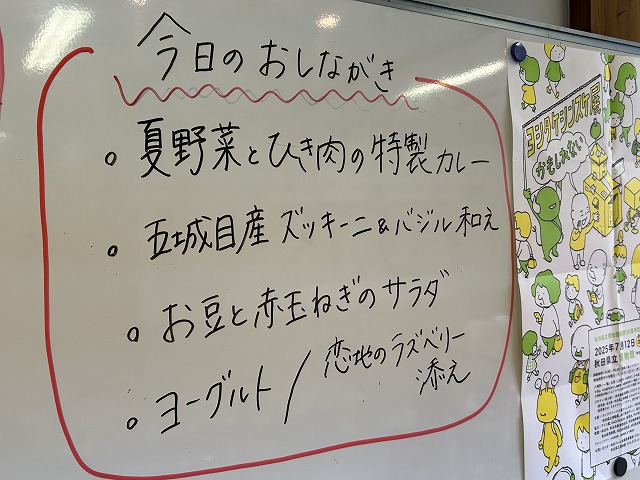 今日のおしながき
○ 夏野菜とひき肉の特製カレー
○ 五城目産 ズッキーニ&バジル和え
○ お豆と赤玉ねぎのサラダ
○ ヨーグルト/恋地のラズベリー
添え
ヨシタケシンスケ展
かもしれない
2025年7月12日
秋田県立博物館